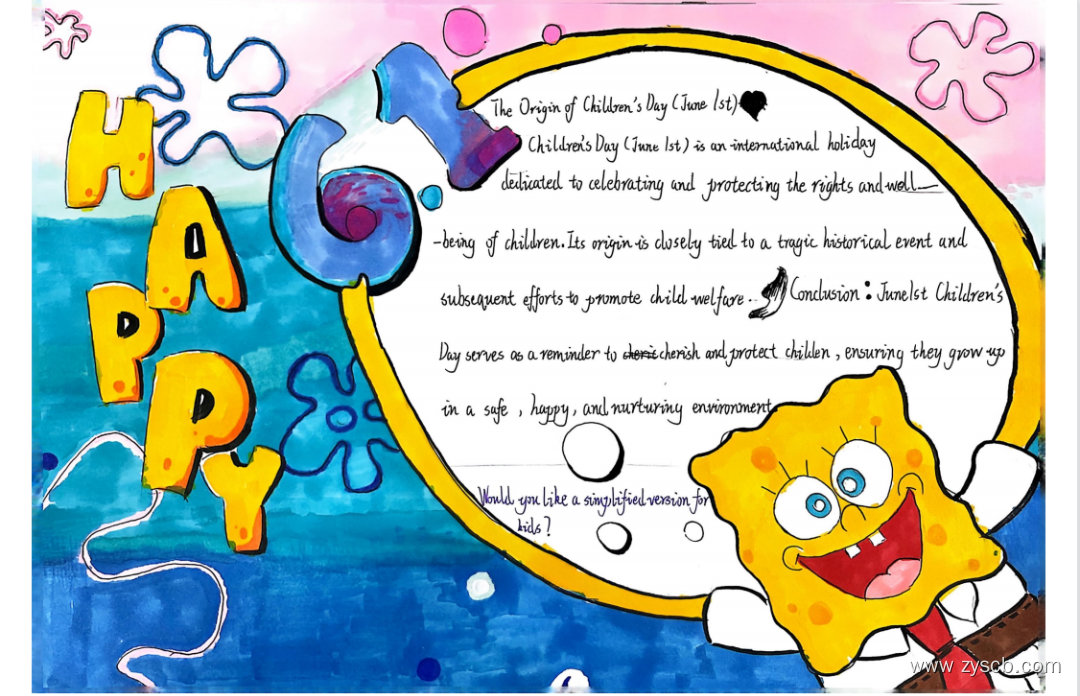 HAPPY
6 1
The Origin of Children's Day (June 1st)
Children's Day (June 1st) is an international holiday
dedicated to celebrating and protecting the rights and well—
-being of children. Its origin is closely tied to a tragic historical event and
subsequent efforts to promote child welfare..
Conclusion: June1st Children's
Day serves as a reminder to cherish and protect childen, ensuring they grow up
in a safe, happy, and nurturing environment.
Would you like a simplified version for
kids?
www.zyscb.com